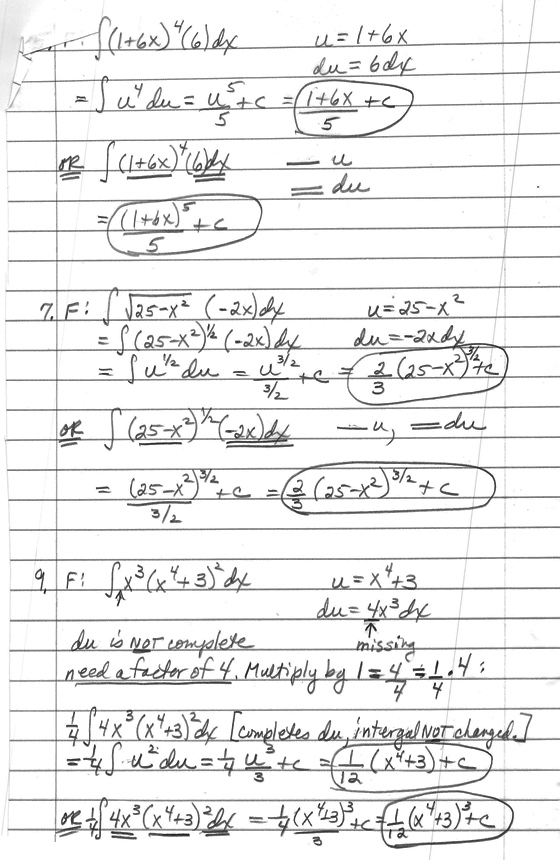 ∫(1+6x)⁴(6)dx    u = 1+6x
du = 6dx
= ∫u⁴du = u⁵/5 + c = (1+6x)/5 + c
OR ∫(1+6x)⁴(6)dx    — u
= du
= (1+6x)⁵/5 + c
7. F: ∫√(25-x²) (-2x)dx    u = 25-x²
= ∫(25-x²)^½ (-2x)dx    du = -2xdx
= ∫u^½ du = u^(3/2)/(3/2) + c = 2/3 (25-x²)^(3/2) + c
OR ∫(25-x²)^(1/2)(-2x)dx    — u, = du
= (25-x²)^(3/2)/(3/2) + c = 2/3 (25-x²)^(3/2) + c
9. F: ∫x³(x⁴+3)²dx    u = x⁴+3
↑    du = 4x³dx
↑
du is NOT complete    missing
need a factor of 4. Multiply by 1 = 4/4 = 1/4 · 4 :
1/4 ∫4x³(x⁴+3)²dx [completes du, intergal NOT changed.]
= 1/4 ∫u²du = 1/4 u³/3 + c = 1/12 (x⁴+3) + c
OR 1/4 ∫4x³(x⁴+3)²dx = 1/4 (x⁴+3)³/3 + c = 1/12 (x⁴+3)³ + c